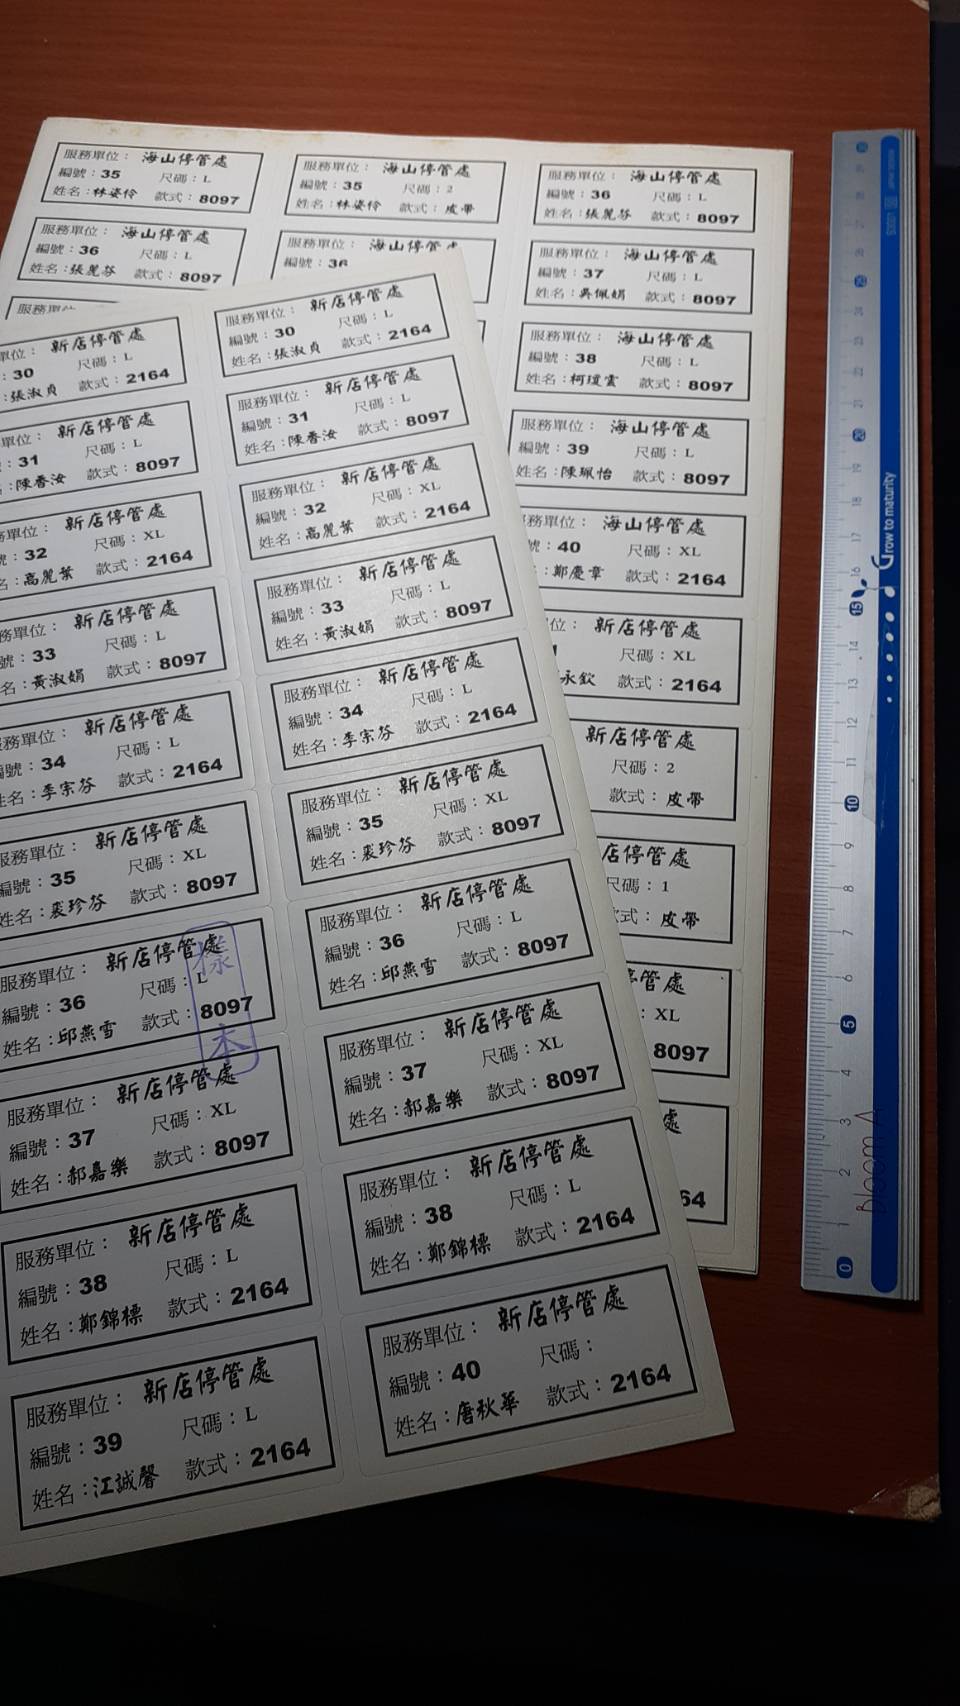 服務單位： 海山停管處
編號：35 尺碼：L
姓名：林姿伶 款式：8097
服務單位： 海山停管處
編號：35 尺碼：2
姓名：林姿伶 款式：皮帶
服務單位： 海山停管處
編號：36 尺碼：L
姓名：張麗芬 款式：8097
服務單位： 海山停管處
編號：36 尺碼：L
姓名：張麗芬 款式：8097
服務單位： 海山停管
編號：36
服務單位： 海山停管處
編號：37 尺碼：L
姓名：吳佩娟 款式：8097
服務單位： 海山停管處
編號：38 尺碼：L
姓名：柯瓊雲 款式：8097
服務單位： 海山停管處
編號：39 尺碼：L
姓名：陳珮怡 款式：8097
務單位： 海山停管處
號：40 尺碼：XL
：鄭慶章 款式：2164
位： 新店停管處
尺碼：XL
永欽 款式：2164
新店停管處
尺碼：2
款式：皮帶
店停管處
尺碼：1
款式：皮帶
管處
：XL
8097
處
64
服務單位
單位： 新店停管處
：30 尺碼：L
：張淑貞 款式：2164
服務單位： 新店停管處
編號：30 尺碼：L
姓名：張淑貞 款式：2164
單位： 新店停管處
：31 尺碼：L
：陳香汝 款式：8097
服務單位： 新店停管處
編號：31 尺碼：L
姓名：陳香汝 款式：8097
務單位： 新店停管處
號：32 尺碼：XL
名：高麗葉 款式：2164
服務單位： 新店停管處
編號：32 尺碼：XL
姓名：高麗葉 款式：2164
務單位： 新店停管處
號：33 尺碼：L
名：黃淑娟 款式：8097
服務單位： 新店停管處
編號：33 尺碼：L
姓名：黃淑娟 款式：8097
服務單位： 新店停管處
編號：34 尺碼：L
姓名：李宗芬 款式：2164
服務單位： 新店停管處
編號：34 尺碼：L
姓名：李宗芬 款式：2164
服務單位： 新店停管處
編號：35 尺碼：XL
姓名：裘珍芬 款式：8097
服務單位： 新店停管處
編號：35 尺碼：XL
姓名：裘珍芬 款式：8097
服務單位： 新店停管處
編號：36 尺碼：L
姓名：邱燕雪 款式：8097
樣本
服務單位： 新店停管處
編號：36 尺碼：L
姓名：邱燕雪 款式：8097
服務單位： 新店停管處
編號：37 尺碼：XL
姓名：郝嘉樂 款式：8097
服務單位： 新店停管處
編號：37 尺碼：XL
姓名：郝嘉樂 款式：8097
服務單位： 新店停管處
編號：38 尺碼：L
姓名：鄭錦標 款式：2164
服務單位： 新店停管處
編號：38 尺碼：L
姓名：鄭錦標 款式：2164
服務單位： 新店停管處
編號：39 尺碼：L
姓名：江誠馨 款式：2164
服務單位： 新店停管處
編號：40 尺碼：
姓名：唐秋華 款式：2164
Grow to maturity
Bloom A
0 1 2 3 4 5 6 7 8 9 10 11 12 13 14 15 16 17 18 19 20 21 22 23 24 25 26 27 28 29 30